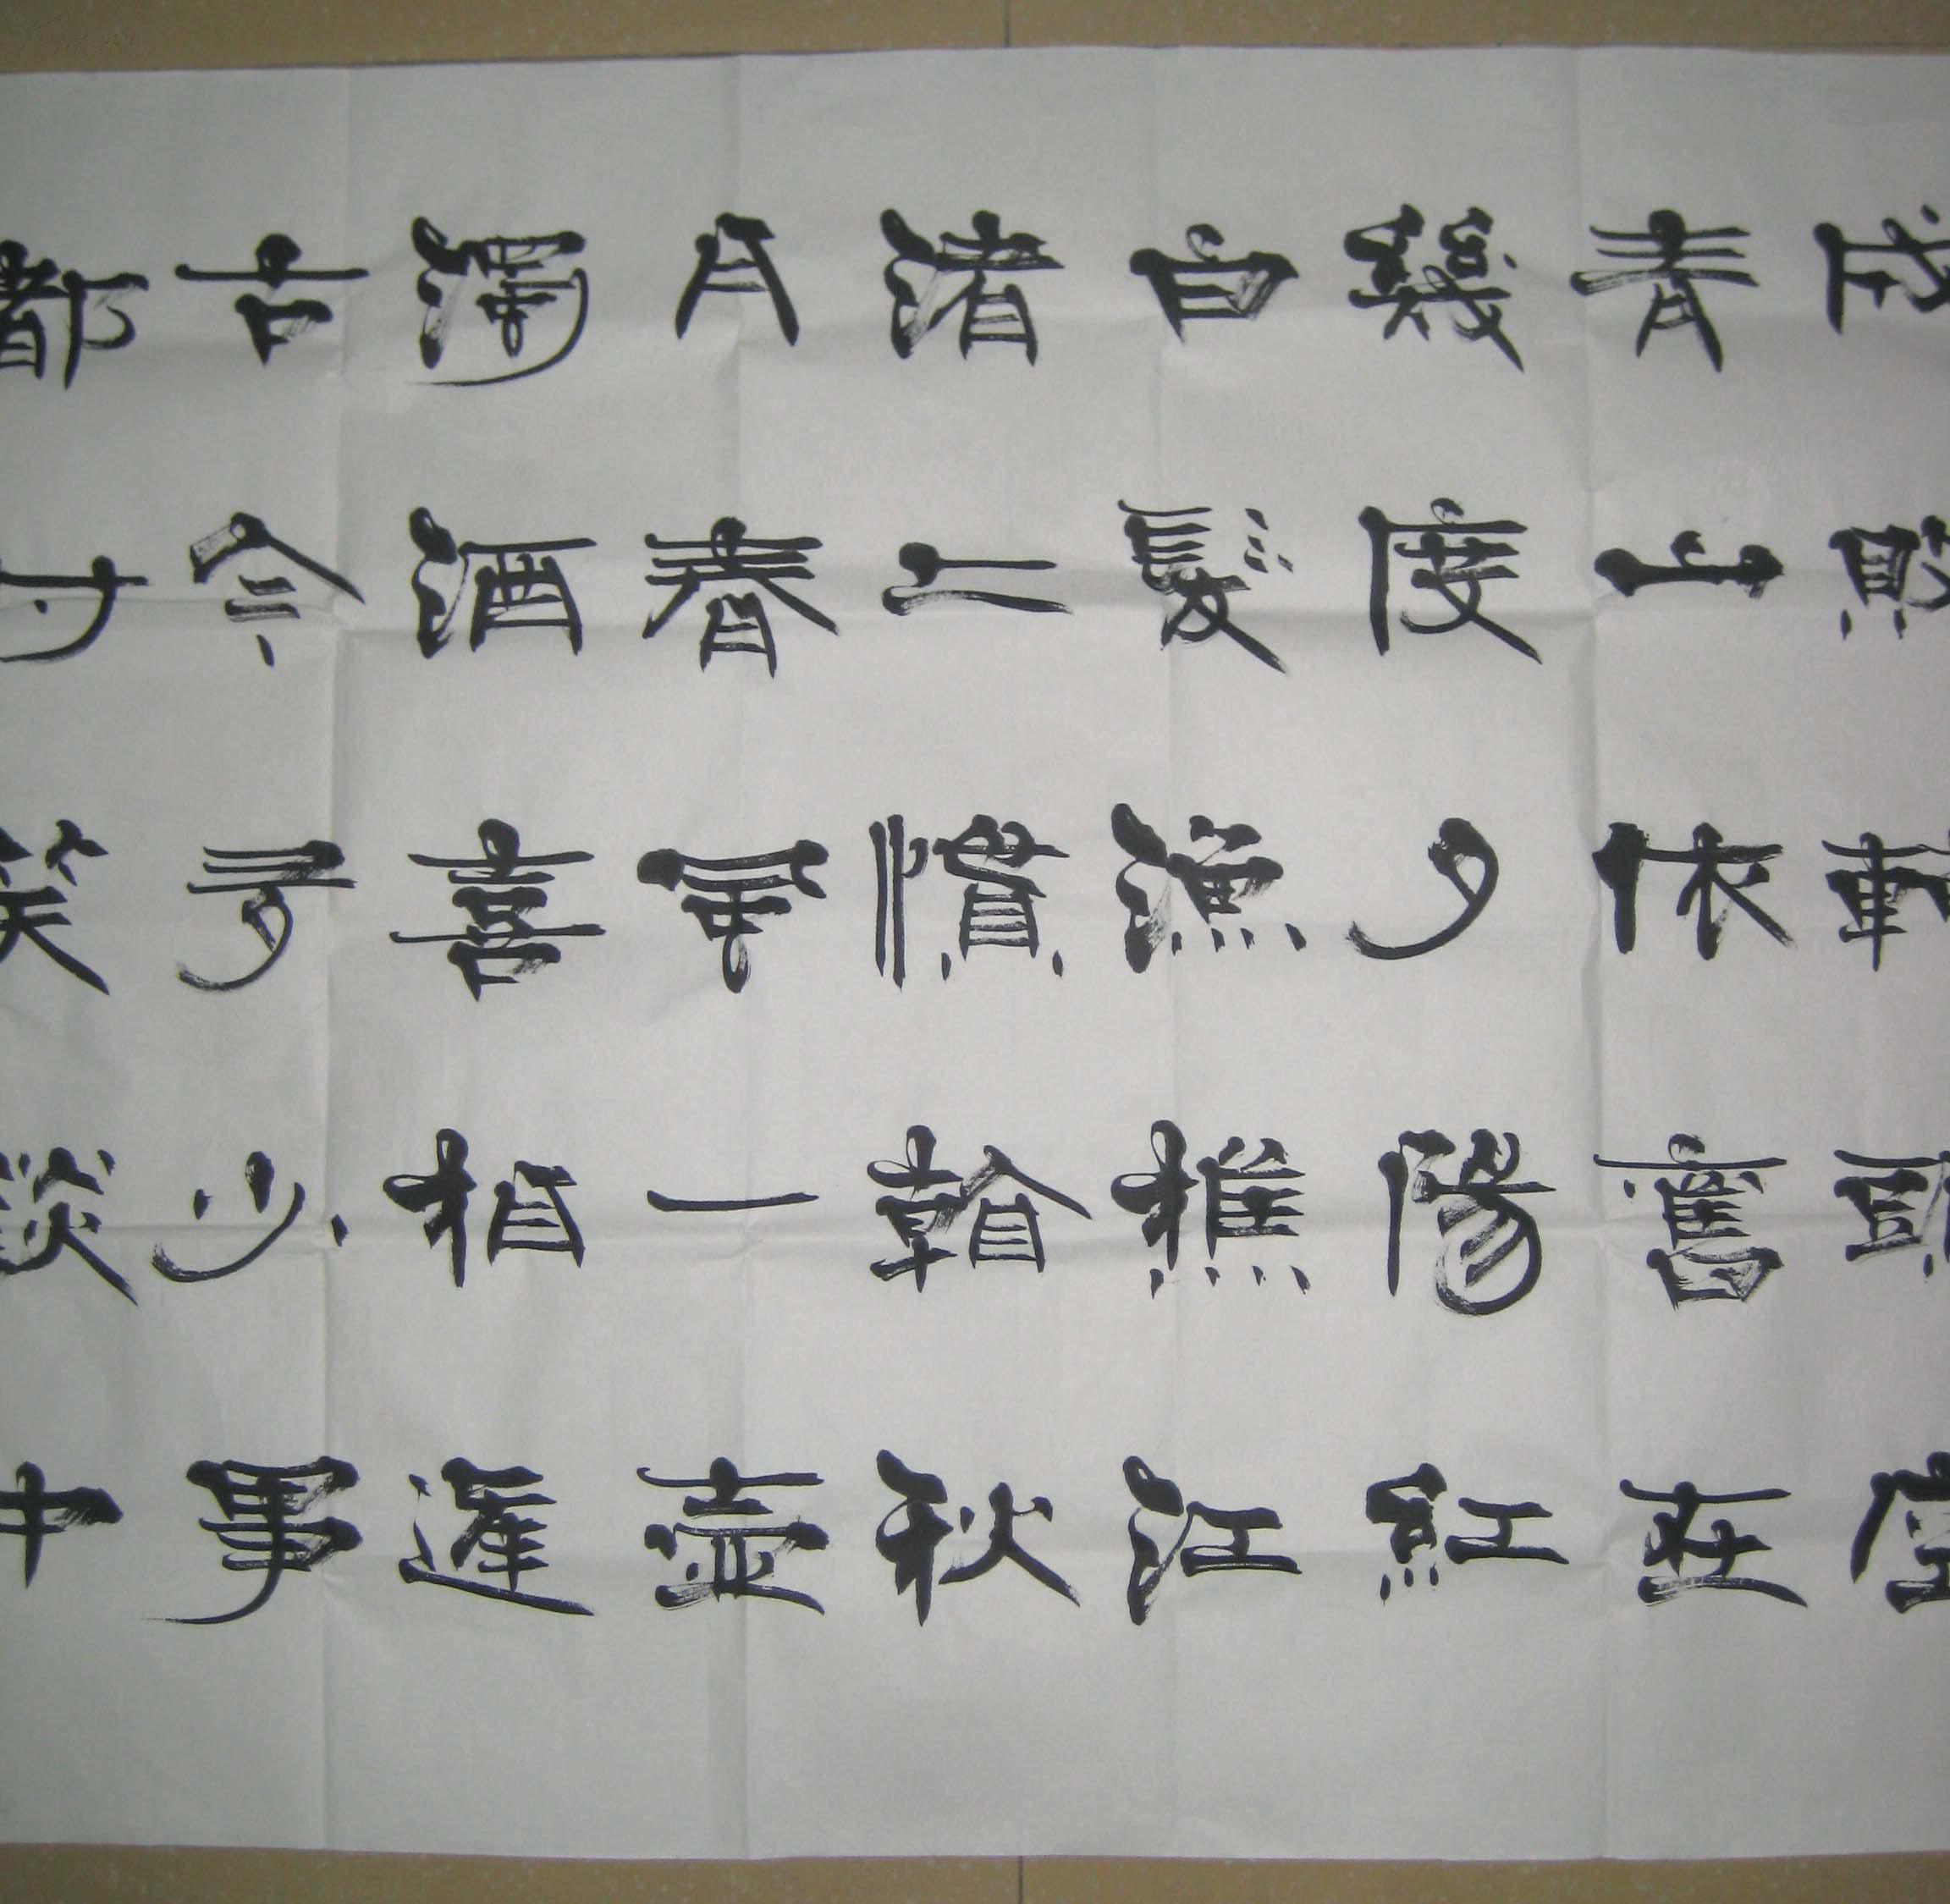 成敗轉頭空
青山依舊在
幾度夕陽紅
白髮漁樵江
渚上慣看秋
月春風一壺
濁酒喜相逢
古今多少事
都付笑談中